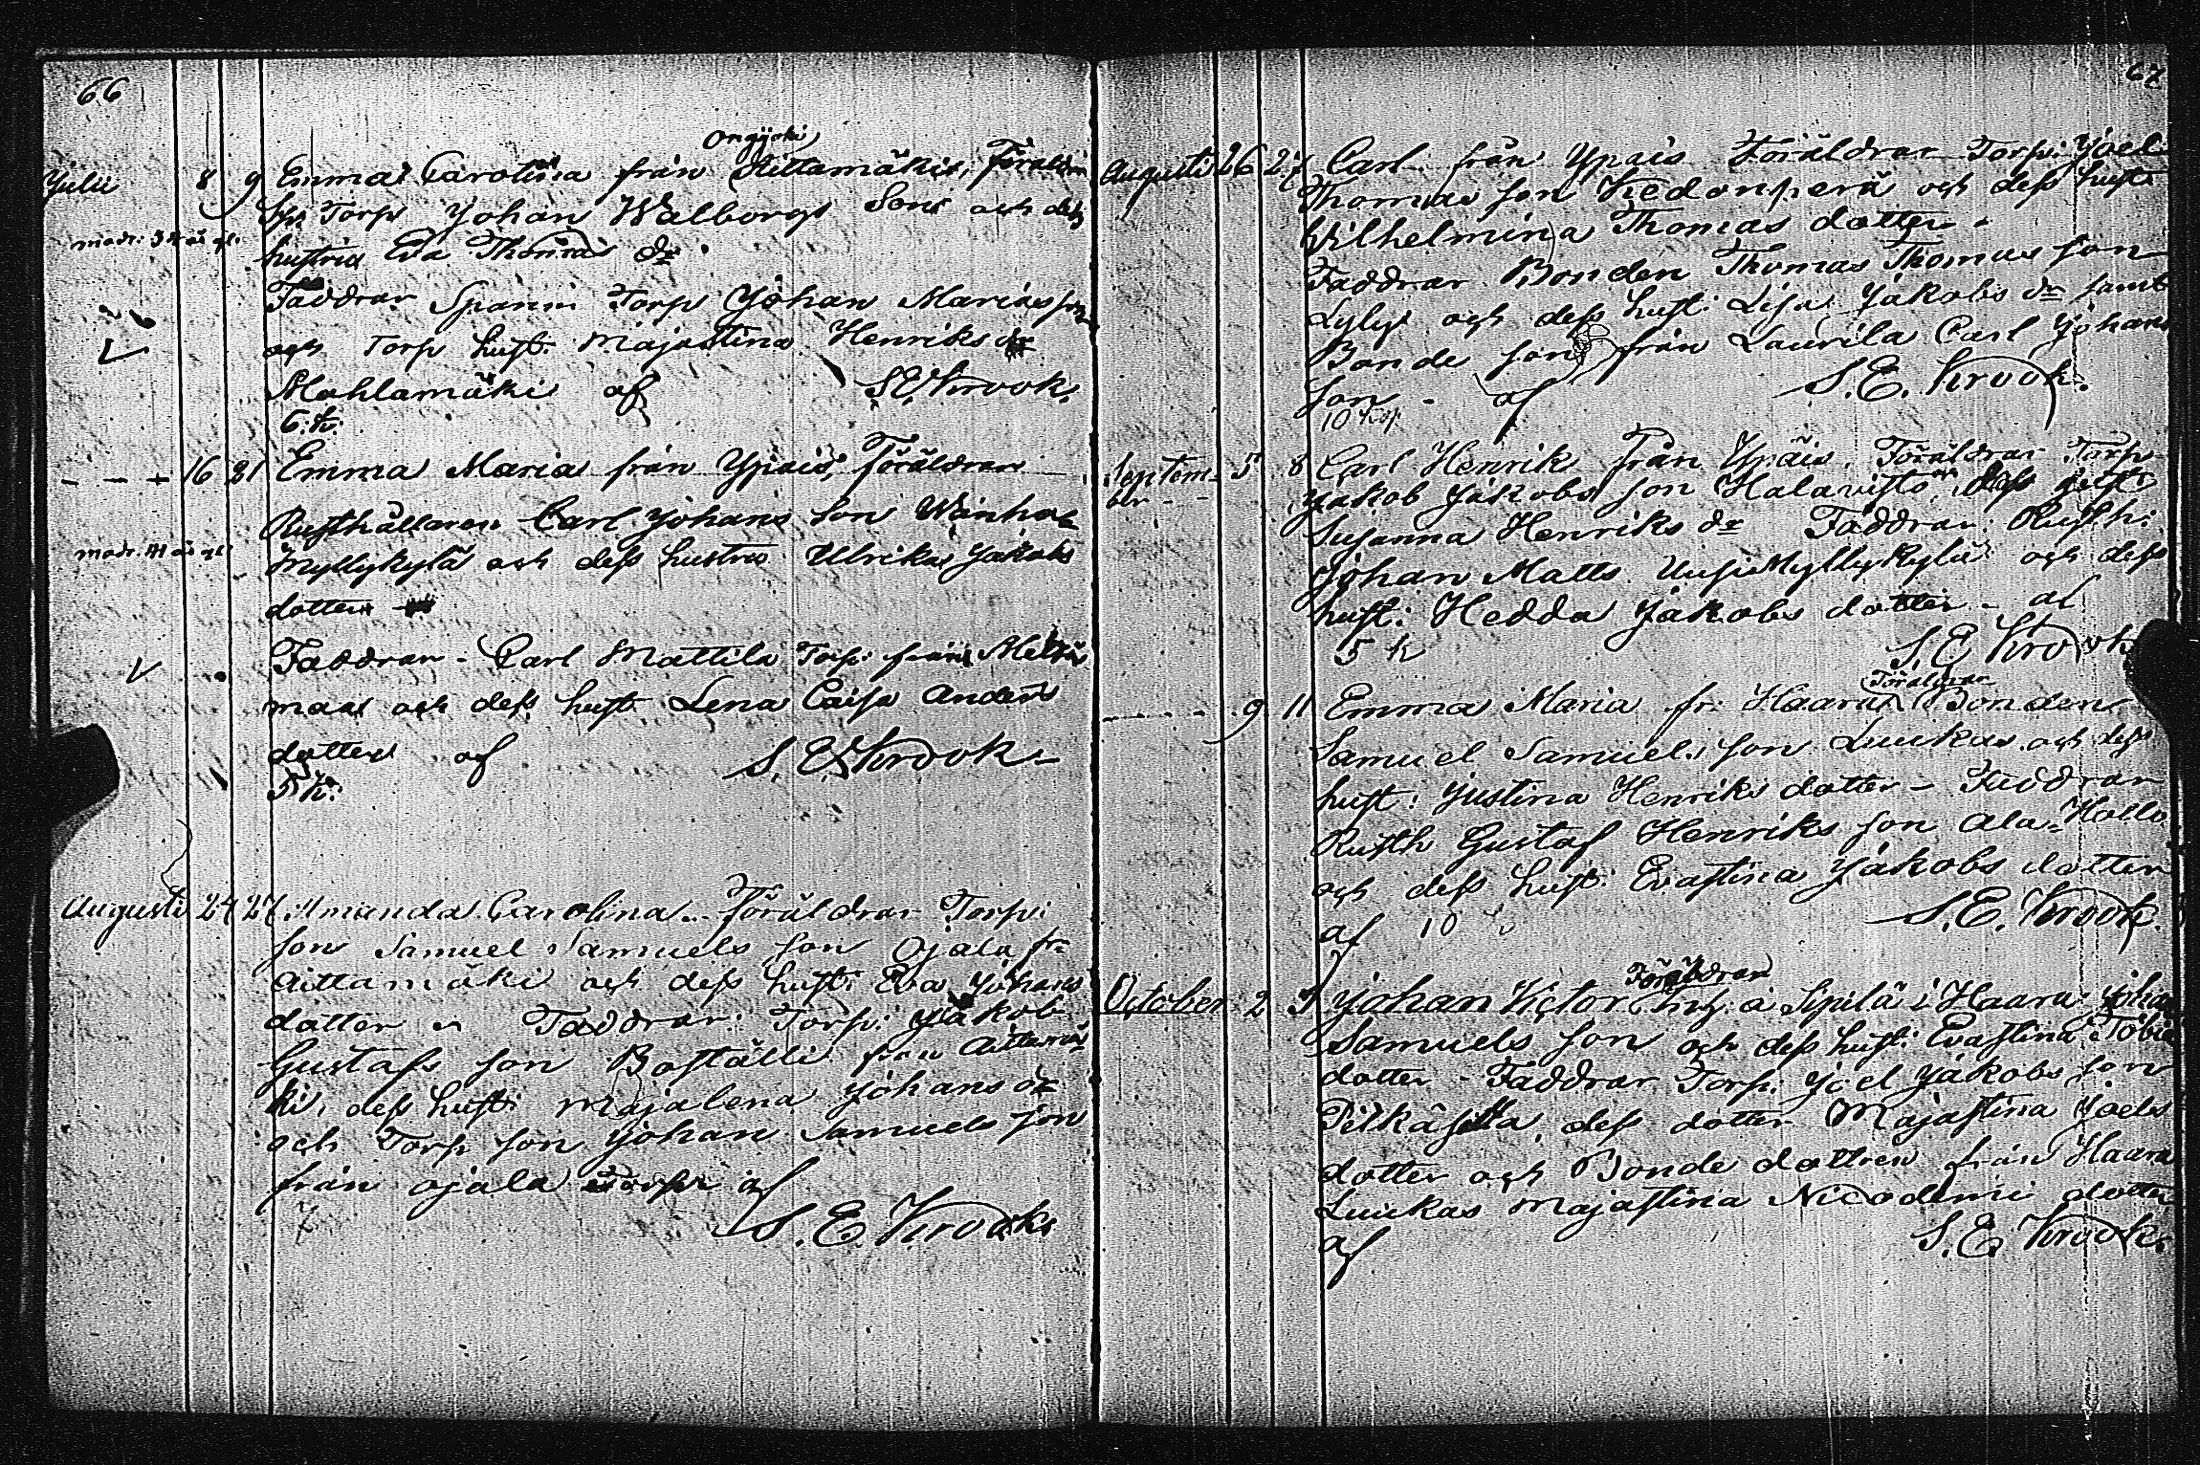 66
Ongijoki
Julii 8 9 Emma Carolina från Aittamäki, Föräldrar
Torp Johan Walborgs Son och dess
modr: år gl.
hustru Eva Thomas dr
Faddrar Spanni Torp Johan Mariæ son
och Torp hust. Majastina Henriks dr
Mahlamäki af S. E. Krook.
6. k:
- - - 16 21 Emma Maria från Ypäis, Föräldrar
Rusthållaren Carl Johans Son Wanha-
modr. 41 år gl.
Myllykylä och dess hustru Ulrika Jakobs
dotter
Faddrar - Carl Mattila Torp: från
maa och dess hust Lena Caisa Anders
dotter af S. E. Krook
5 k:
Augusti 24 27 Amanda Carolina. Föräldrar Torp:
son Samuel Samuels son Ojala fr
Aittamäki och dess hust: Eva Johans
dotter - Faddrar: Torp: Jakob
Gustafs son Boställi från Aittamä-
ki, dess hust: Majalena Johans dr
och Torp son Johan Samuels son
från Ojala af
S. E. Krook
67
Augusti 26 27 Carl från Ypäis Föräldrar Torp: Joel
Thomas son Kedonperä och dess hust:
Wilhelmina Thomas dotter -
Faddrar Bonden Thomas Thomas son
Lyly och dess hust: Lisa Jakobs dr samt
Bonde son från Laurila Carl Johans
son - af S. E. Krook.
10 kop
Septem- 5 8 Carl Henrik från Ypäis, Föräldrar Torp
ber - - Jakob Jakobs son Halavisto, dess hust:
Susanna Henriks dr Faddrar: Rusth:
Johan Matts Uusi Myllykylä och dess
hust: Hedda Jakobs dotter - af
5 k S. E. Krook
Föräldrar
- - - - 9 11 Emma Maria fr: Haara Bonden
Samuel Samuels son Luukas och dess
hust: Justina Henriks dotter - Faddrar
Rusth Gustaf Henriks son Ala-Hollo
och dess hust: Evastina Jakobs dotter
af 10 S. E. Krook.
Föräldrar
October 2 Johan Victor å Sipilä i Haara: Johan
Samuels son och dess hust: Evastina Tobias
dotter - Faddrar Torp: Joel Jakobs son
Pitkäsilta, dess dotter Majastina Joels
dotter och Bonde dottren från Haara
Luukas Majastina Nicodemi dotter
af S. E. Krook.